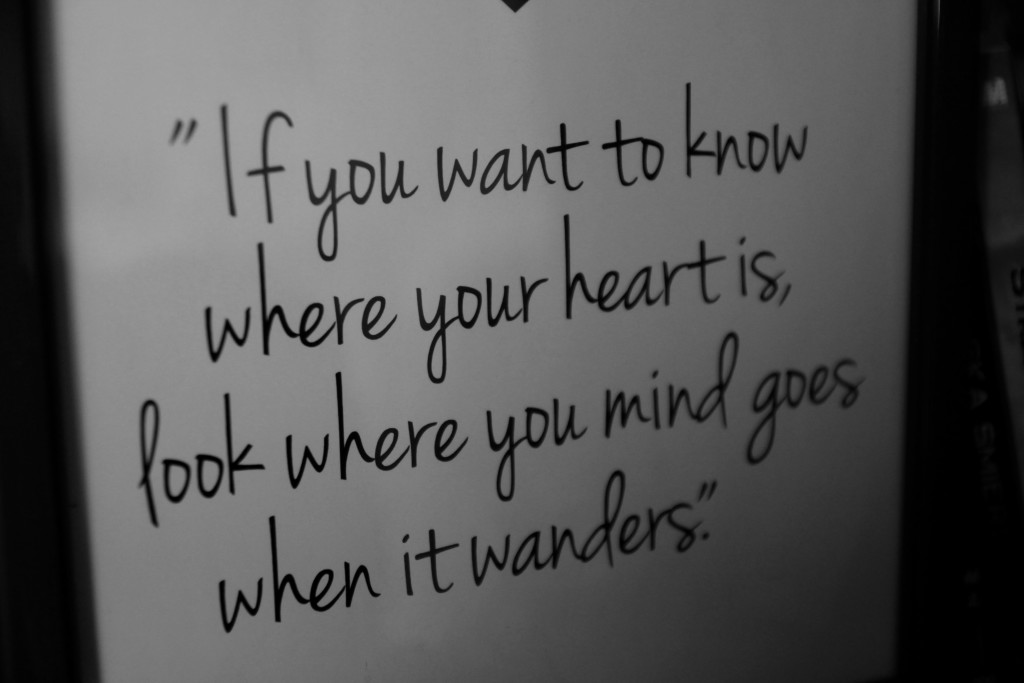 "If you want to know
where your heart is,
look where you mind goes
when it wanders."